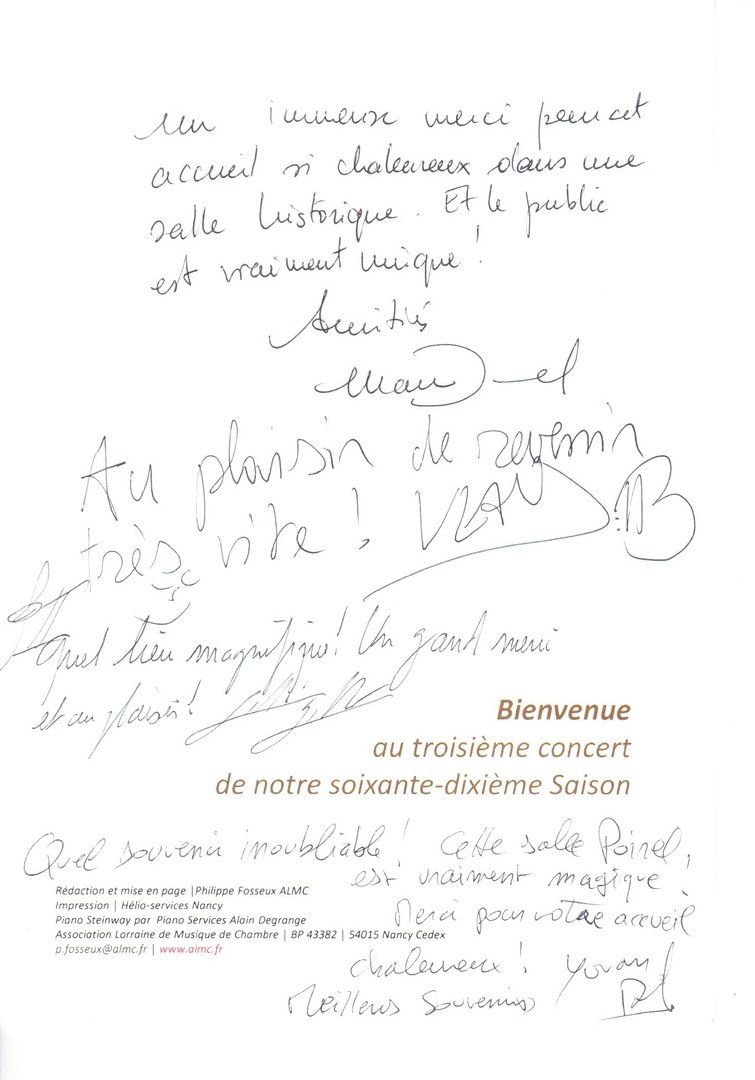 Un immense merci pour cet
accueil si chaleureux dans une
salle historique. Et le public
est vraiment unique !
Amitiés
Au plaisir de revenir
très vite !
Quel lieu magnifique ! Un grand merci
et au plaisir !
Bienvenue
au troisième concert
de notre soixante-dixième Saison
Quel souvenir inoubliable ! Cette salle Poirel,
est vraiment magique.
Merci pour votre accueil
chaleureux ! Yovan
Meilleurs Souvenirs
Rédaction et mise en page |Philippe Fosseux ALMC
Impression | Hélio-services Nancy
Piano Steinway par Piano Services Alain Degrange
Association Lorraine de Musique de Chambre | BP 43382 | 54015 Nancy Cedex
p.fosseux@almc.fr | www.almc.fr